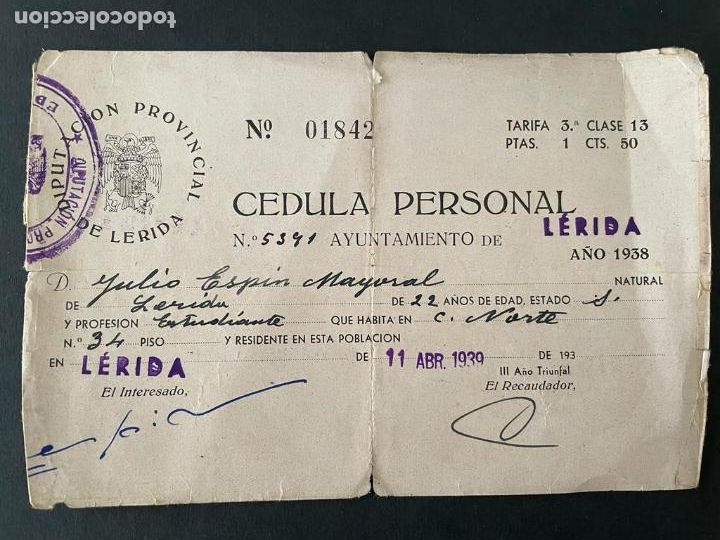 todocoleccion
DIPUTACION PROVINCIAL
DE LERIDA
DIPUTACIÓN PRO
Nº 01842
TARIFA 3.ª CLASE 13
PTAS. 1 CTS. 50
CEDULA PERSONAL
N.º 5391 AYUNTAMIENTO DE LÉRIDA
AÑO 1938
D. Julio Espin Mayoral NATURAL
DE Lerida DE 22 AÑOS DE EDAD, ESTADO S.
Y PROFESION Estudiante QUE HABITA EN C. Norte
N.º 34 PISO Y RESIDENTE EN ESTA POBLACION
EN LÉRIDA DE 11 ABR. 1939 DE 193
III Año Triunfal
El Interesado, El Recaudador,